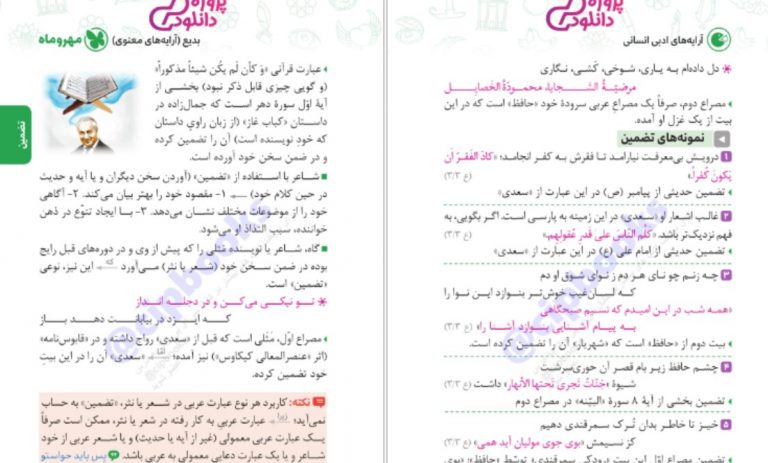 پروژه
دانلود
آرایه‌های ادبی انسانی
دل داده‌ام به یاری، شوخی، کُشی، نگاری
مرضیّةُ السَّجایا، محمودةُ الخَصایِل
مصراع دوم، صرفاً یک مصراع عربی سرودهٔ خود «حافظ» است که در این
بیت از یک غزل او آمده.
نمونه‌های تضمین
۱ درویش بی‌معرفت نیارامد تا فقرش به کفر انجامد؛ «کادَ الفَقرُ أن
یَکونَ کُفراً.» (ع ۳/۳)
تضمین حدیثی از پیامبر (ص) در این عبارت از «سعدی»
۲ غالب اشعار او «سعدی» در این زمینه به پارسی است. اگر بگویی، به
فهم نزدیک‌تر باشد. «کَلِّمِ النّاسَ علی قَدرِ عُقولِهِم.» (ع ۳/۳)
تضمین حدیثی از امام علی (ع) در این عبارت از «سعدی»
۳ چه زنم چو نای هر دم ز نوای شوق او دم
که لسان‌غیب خوش‌تر بنوازد این نوا را
«همه شب در این امیدم که نسیم صبحگاهی
به پیام آشنایی بنوازد آشنا را» (ع ۳/۳)
بیت دوم از «حافظ» است که «شهریار» آن را تضمین کرده است.
۴ چشم حافظ زیر بام قصر آن حوری‌سرشت
شیوهٔ «جَنّاتُ تَجری تَحتِها الأنهار» داشت (ع ۳/۳)
تضمین بخشی از آیهٔ ۸ سورهٔ «البیّنه» در مصراع دوم
۵ خیز تا خاطر بدان تُرک سمرقندی دهیم
کز نسیمش «بوی جوی مولیان آید همی» (ع ۳/۳)
تضمین مصراع اوّل این بیت «رودکی سمرقندی» توسّط «حافظ»: «بوی
بدیع (آرایه‌های معنوی)
مهروماه
پروژه
دانلود
تضمین
عبارت قرآنی «وَ کأن لَم یکُن شیئاً مذکوراً»
(و گویی چیزی قابل ذکر نبود) بخشی از
آیهٔ اوّل سورهٔ دهر است که جمال‌زاده در
داستان «کباب غاز» (از زبان راوی داستان
که خودِ نویسنده است) آن را تضمین کرده
و در ضمن سخن خود آورده است.
شاعر با استفاده از «تضمین» (آوردن سخن دیگران و یا آیه و حدیث
در حین کلام خود) ۱- مقصود خود را بهتر بیان می‌کند. ۲- آگاهی
خود را از موضوعات مختلف نشان می‌دهد. ۳- بـا ایجاد تنوّع در ذهن
خواننده، سبب التذاذ او می‌شود.
گاه، شاعر یا نویسنده مَثَلی را که پیش از وی و در دوره‌های قبل رایج
بوده در ضمن سخن خود (شعر یا نثر) می‌آورد که این نیز، نوعی
«تضمین» است.
تو نیکی می‌کن و در دجله انداز
که ایزد در بیابانت دهد باز
مصراع اوّل، مَثَلی است که قبل از «سعدی» رواج داشته و در «قابوس‌نامه»
(اثر «عنصرالمعالی کیکاوس») نیز آمده؛ امّا «سعدی» آن را در این بیتِ
خود تضمین کرده.
نکته: کاربرد هر نوع عبارت عربی در شعر یا نثر، «تضمین» به حساب
نمی‌آید؛ زیرا عبارت عربی به کار رفته در شعر یا نثر، ممکن است صرفاً
یک عبارت عربی معمولی (غیر از آیه یا حدیث) و یا شعر عربی از خود
شاعر و یا یک عبارت دعایی معمولی به عربی باشد. پس باید حواستو